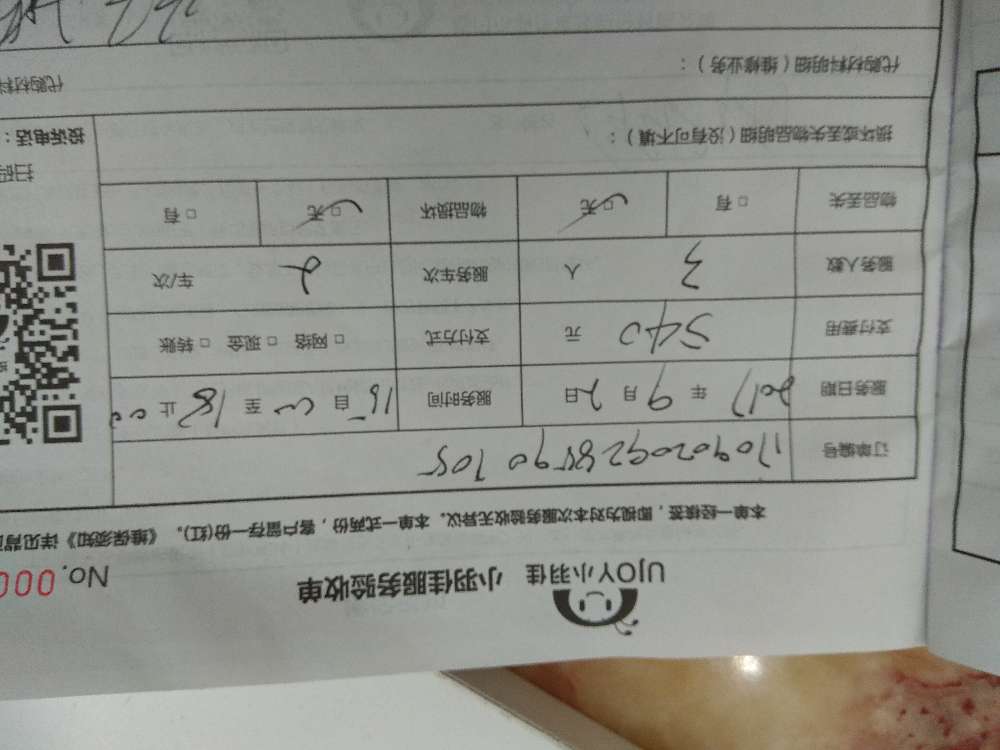 UJOY小羽佳 小羽佳服务验收单
No.000
本单一经核签，即视为对本次服务验收无异议。本单一式两份，客户留存一份(红)。《维保须知》详见背
订单编号
服务日期 2017 年 9 月 2 日 服务时间 自 至 18 止
支付费用 540 元 支付方式 □ 网络 □ 现金 □ 转账
服务人数 3 人 服务车次 2 车/次
物品丢失 □ 有 □ 无 物品损坏 □ 无 □ 有
损坏或丢失物品明细（没有可不填）：
扫码
投诉电话：
代购材料明细（维修业务）：
代购材料